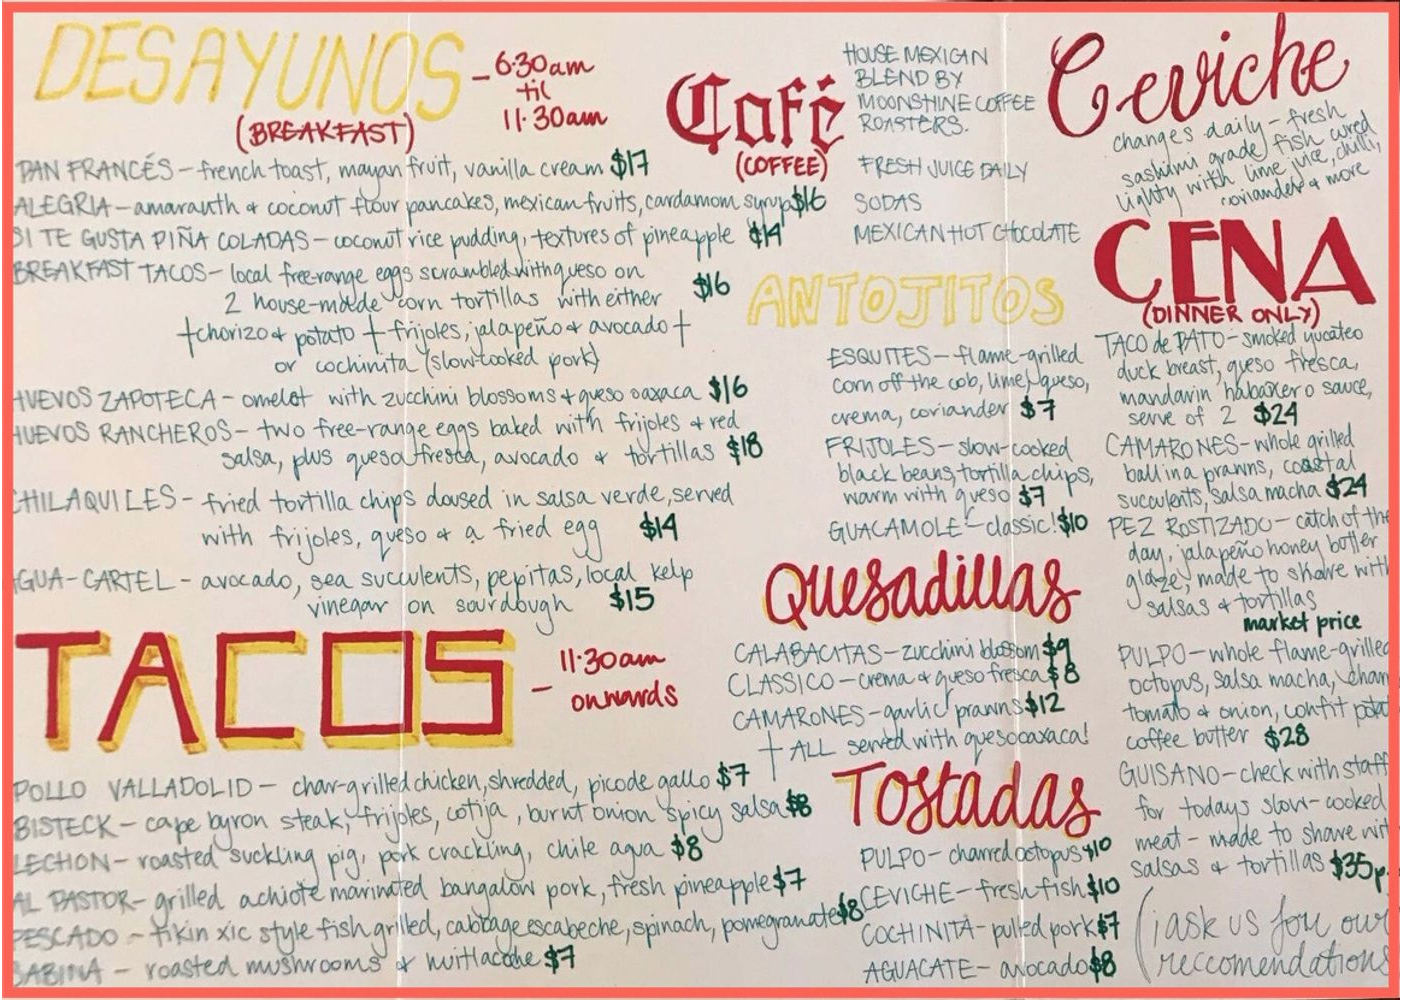 DESAYUNOS
(BREAKFAST)
- 6·30am
til
11·30am
PAN FRANCÉS - french toast, mayan fruit, vanilla cream $17
ALEGRIA - amaranth & coconut flour pancakes, mexican fruits, cardamom syrup $16
SI TE GUSTA PIÑA COLADAS - coconut rice pudding, textures of pineapple $14
BREAKFAST TACOS - local free-range eggs scrambled with queso on
2 house-made corn tortillas with either $16
†chorizo & potato † frijoles, jalapeño & avocado †
or cochinita (slow-cooked pork)
HUEVOS ZAPOTECA - omelot with zucchini blossoms & queso oaxaca $16
HUEVOS RANCHEROS - two free-range eggs baked with frijoles & red
salsa, plus queso fresca, avocado & tortillas $18
CHILAQUILES - fried tortilla chips doused in salsa verde, served
with frijoles, queso & a fried egg $14
AGUA-CARTEL - avocado, sea succulents, pepitas, local kelp
vinegar on sourdough $15
TACOS
- 11·30am
onwards
POLLO VALLADOLID - char-grilled chicken, shredded, pico de gallo $7
BISTECK - cape byron steak, frijoles, cotija, burnt onion spicy salsa $8
LECHON - roasted suckling pig, pork crackling, chile agua $8
AL PASTOR - grilled achiote marinated bangalow pork, fresh pineapple $7
PESCADO - tikin xic style fish grilled, cabbage escabeche, spinach, pomegranate $8
SABINA - roasted mushrooms & huitlacohe $7
Café
(COFFEE)
HOUSE MEXICAN
BLEND BY
MOONSHINE COFFEE
ROASTERS.
FRESH JUICE DAILY
SODAS
MEXICAN HOT CHOCOLATE
ANTOJITOS
ESQUITES - flame-grilled
corn off the cob, lime, queso,
crema, coriander $7
FRIJOLES - slow-cooked
black beans, tortilla chips,
warm with queso $7
GUACAMOLE - classic! $10
Quesadillas
CALABACITAS - zucchini blossom $9
CLASSICO - crema & queso fresca $8
CAMARONES - garlic prawns $12
† ALL served with queso oaxaca!
Tostadas
PULPO - charred octopus $10
CEVICHE - fresh fish $10
COCHINITA - pulled pork $7
AGUACATE - avocado $8
Ceviche
changes daily - fresh
sashimi grade fish cured
lightly with lime juice, chilli,
coriander & more
CENA
(DINNER ONLY)
TACO de PATO - smoked yucateo
duck breast, queso fresca,
mandarin habañero sauce,
serve of 2 $24
CAMARONES - whole grilled
ballina prawns, coastal
succulents, salsa macha $24
PEZ ROSTIZADO - catch of the
day, jalapeño honey butter
glaze, made to share with
salsas & tortillas
market price
PULPO - whole flame-grilled
octopus, salsa macha, char
tomato & onion, confit potat
coffee butter $28
GUISANO - check with staff
for todays slow-cooked
meat - made to share wit
salsas & tortillas $35p.
(¡ask us for our
reccomendations